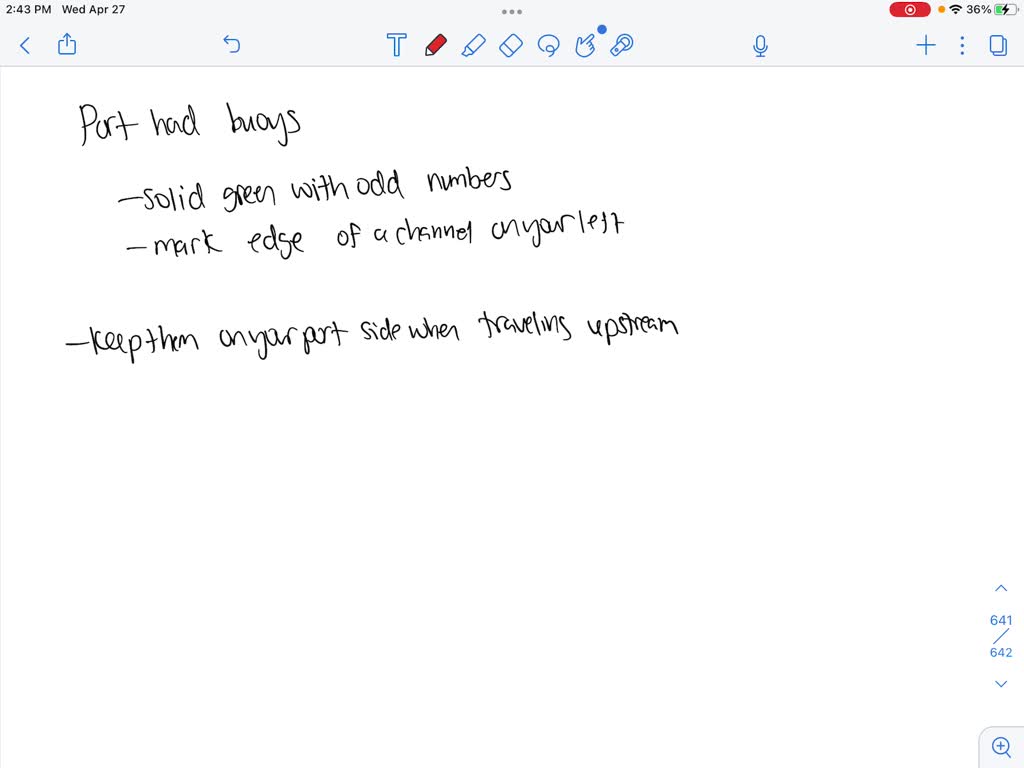 2:43 PM Wed Apr 27
36%
T
Port had buoys
- solid green with odd numbers
- mark edge of a channel on your left
- keep them on your port side when traveling upstream
641
642